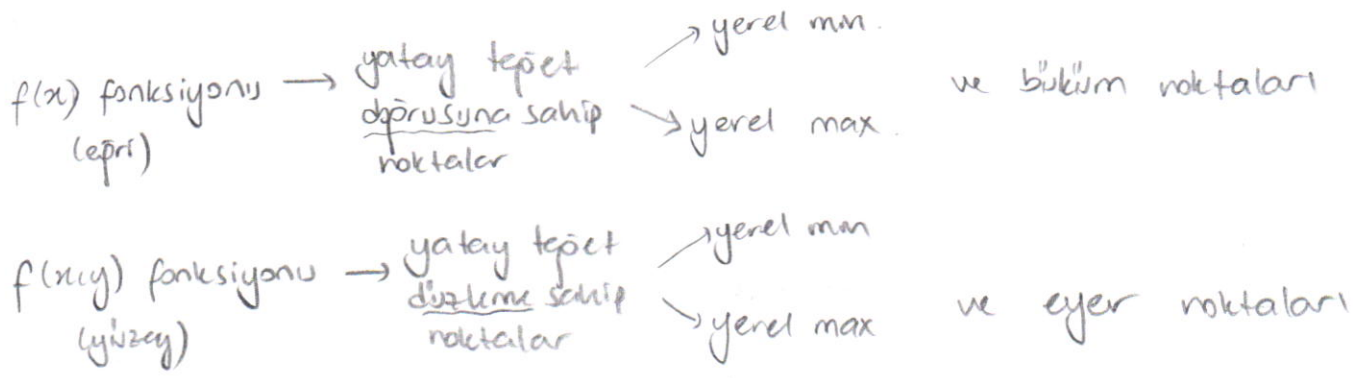 f(x) fonksiyonu → yatay teğet doğrusuna sahip noktalar → yerel min.
(eğri) → yerel max. ve büküm noktaları
f(x,y) fonksiyonu → yatay teğet düzleme sahip noktalar → yerel min
(yüzey) → yerel max ve eyer noktaları